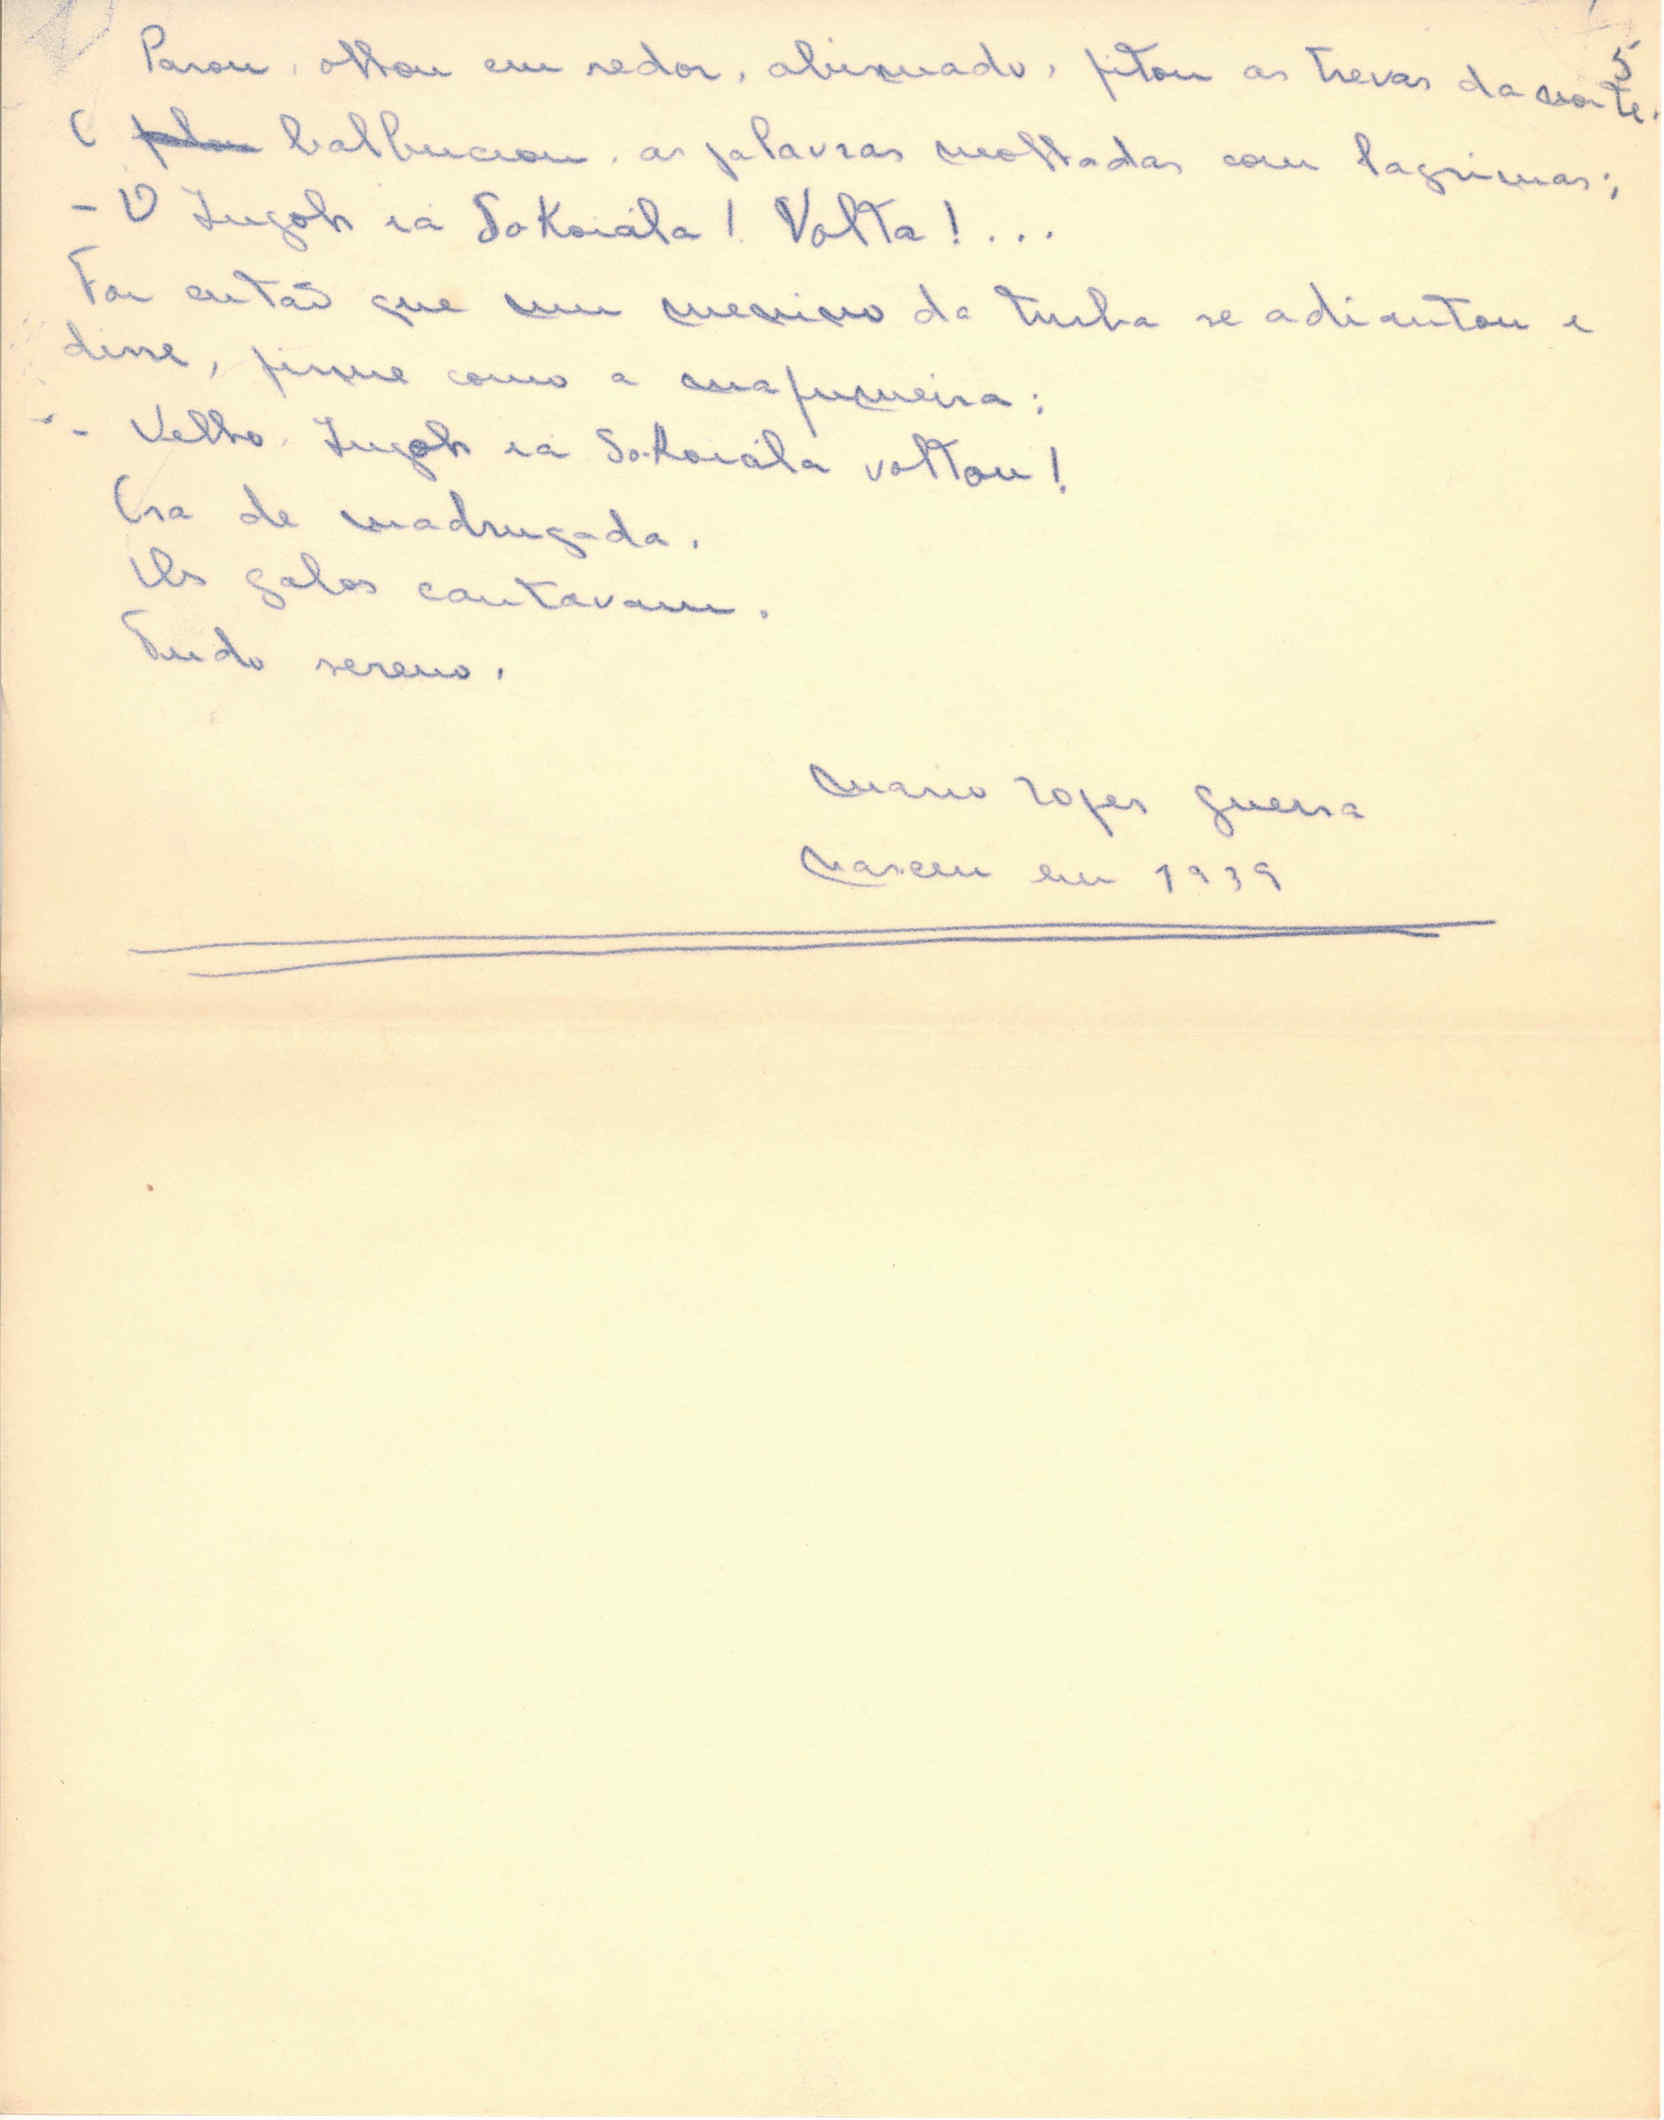 5
Parou, olhou em redor, abismado, fitou as trevas da noite.
E balbuciou, as palavras molhadas com lagrimas:
- O Jugoh iá Sakoiála! Volta!...
Foi então que um menino da turba se adiantou e
disse, firme como a mafumeira:
- Velho. Jugoh iá Sakoiála voltou!
Era de madrugada.
Os galos cantavam.
Tudo sereno.
Mario Lopes Guerra
Nasceu em 1939